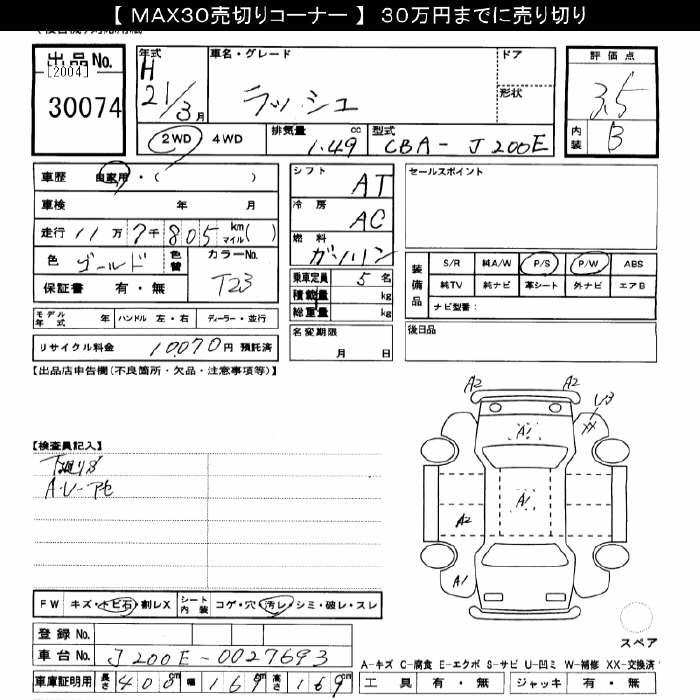 【 MAX30売切りコーナー 】 30万円までに売り切り
出品No.
[2004]
30074
年式
H
21/3月
車名・グレード
ラッシュ
ドア
形状
評価点
3.5
内装
B
2WD 4WD
排気量 cc
1.49
型式
CBA-J200E
車歴 自家用・( )
車検 年 月
走行 11万7千805 km マイル( )
色 ゴールド 色替
カラーNo.
T23
保証書 有・無
モデル年式 年 ハンドル 左・右 ディーラー・並行
リサイクル料金 10070円 預託済
シフト
AT
冷房
AC
燃料
ガソリン
乗車定員 5名
積載量 kg
総重量 kg
名変期限
月 日
セールスポイント
装備品
S/R 純A/W P/S P/W ABS
純TV 純ナビ 革シート 外ナビ エアB
ナビ型番:
後日品
【出品店申告欄(不良箇所・欠品・注意事項等)】
【検査員記入】
下廻りS
A・U一アセ
A2
A2
A1
XX
A1
A2
A1
スペア
FW キズ・トビ石・割レX シート内装 コゲ・穴・汚レ・シミ・破レ・スレ
登録No.
車台No. J200E-0027693
車庫証明用 長さ 408cm 幅 169cm 高さ 169cm
A-キズ C-腐食 E-エクボ S-サビ U-凹ミ W-補修 XX-交換済
工具 有・無 ジャッキ 有・無